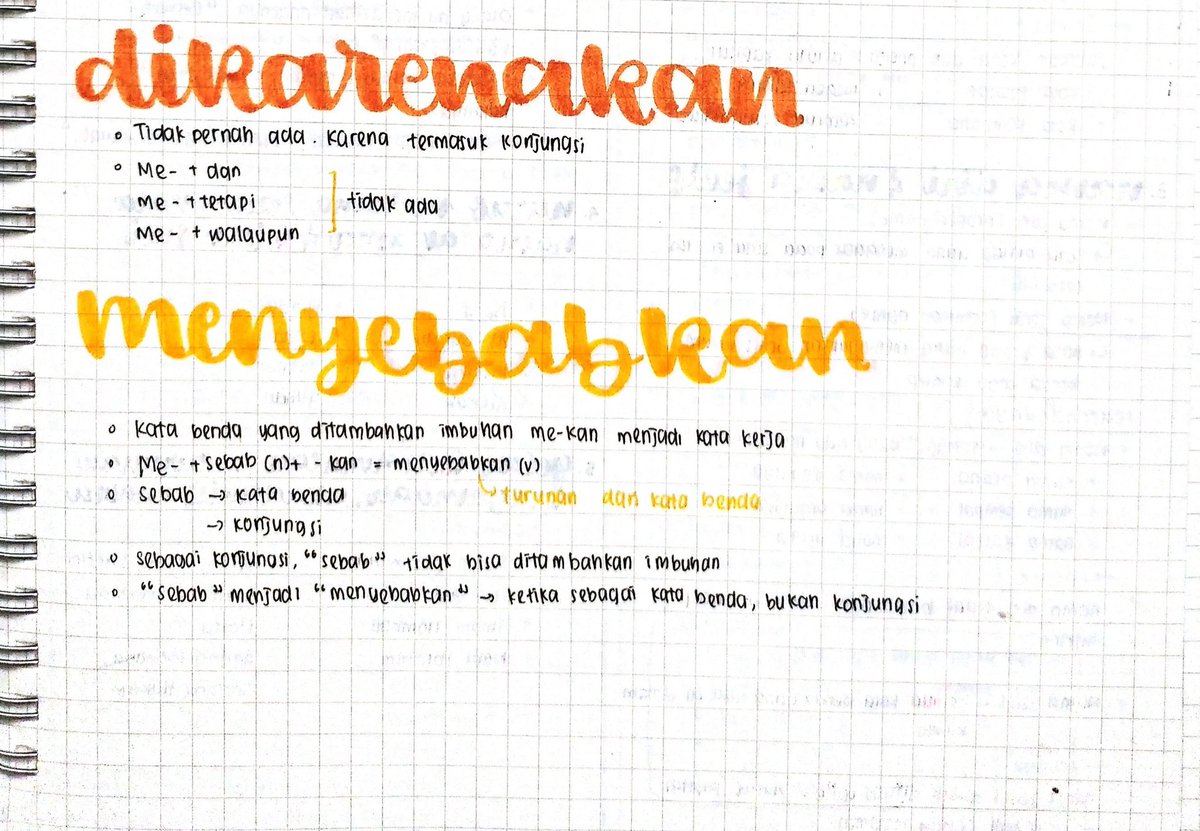 dikarenakan
◦ Tidak pernah ada. Karena termasuk konjungsi
◦ Me- + dan
Me- + tetapi } tidak ada
Me- + walaupun
menyebabkan
◦ Kata benda yang ditambahkan imbuhan me-kan menjadi kata kerja
◦ Me- + sebab (n) + - kan = menyebabkan (v)
↳ turunan dari kata benda
◦ sebab → kata benda
→ konjungsi
◦ sebagai konjungsi, "sebab" tidak bisa ditambahkan imbuhan
◦ "sebab" menjadi "menyebabkan" → ketika sebagai kata benda, bukan konjungsi